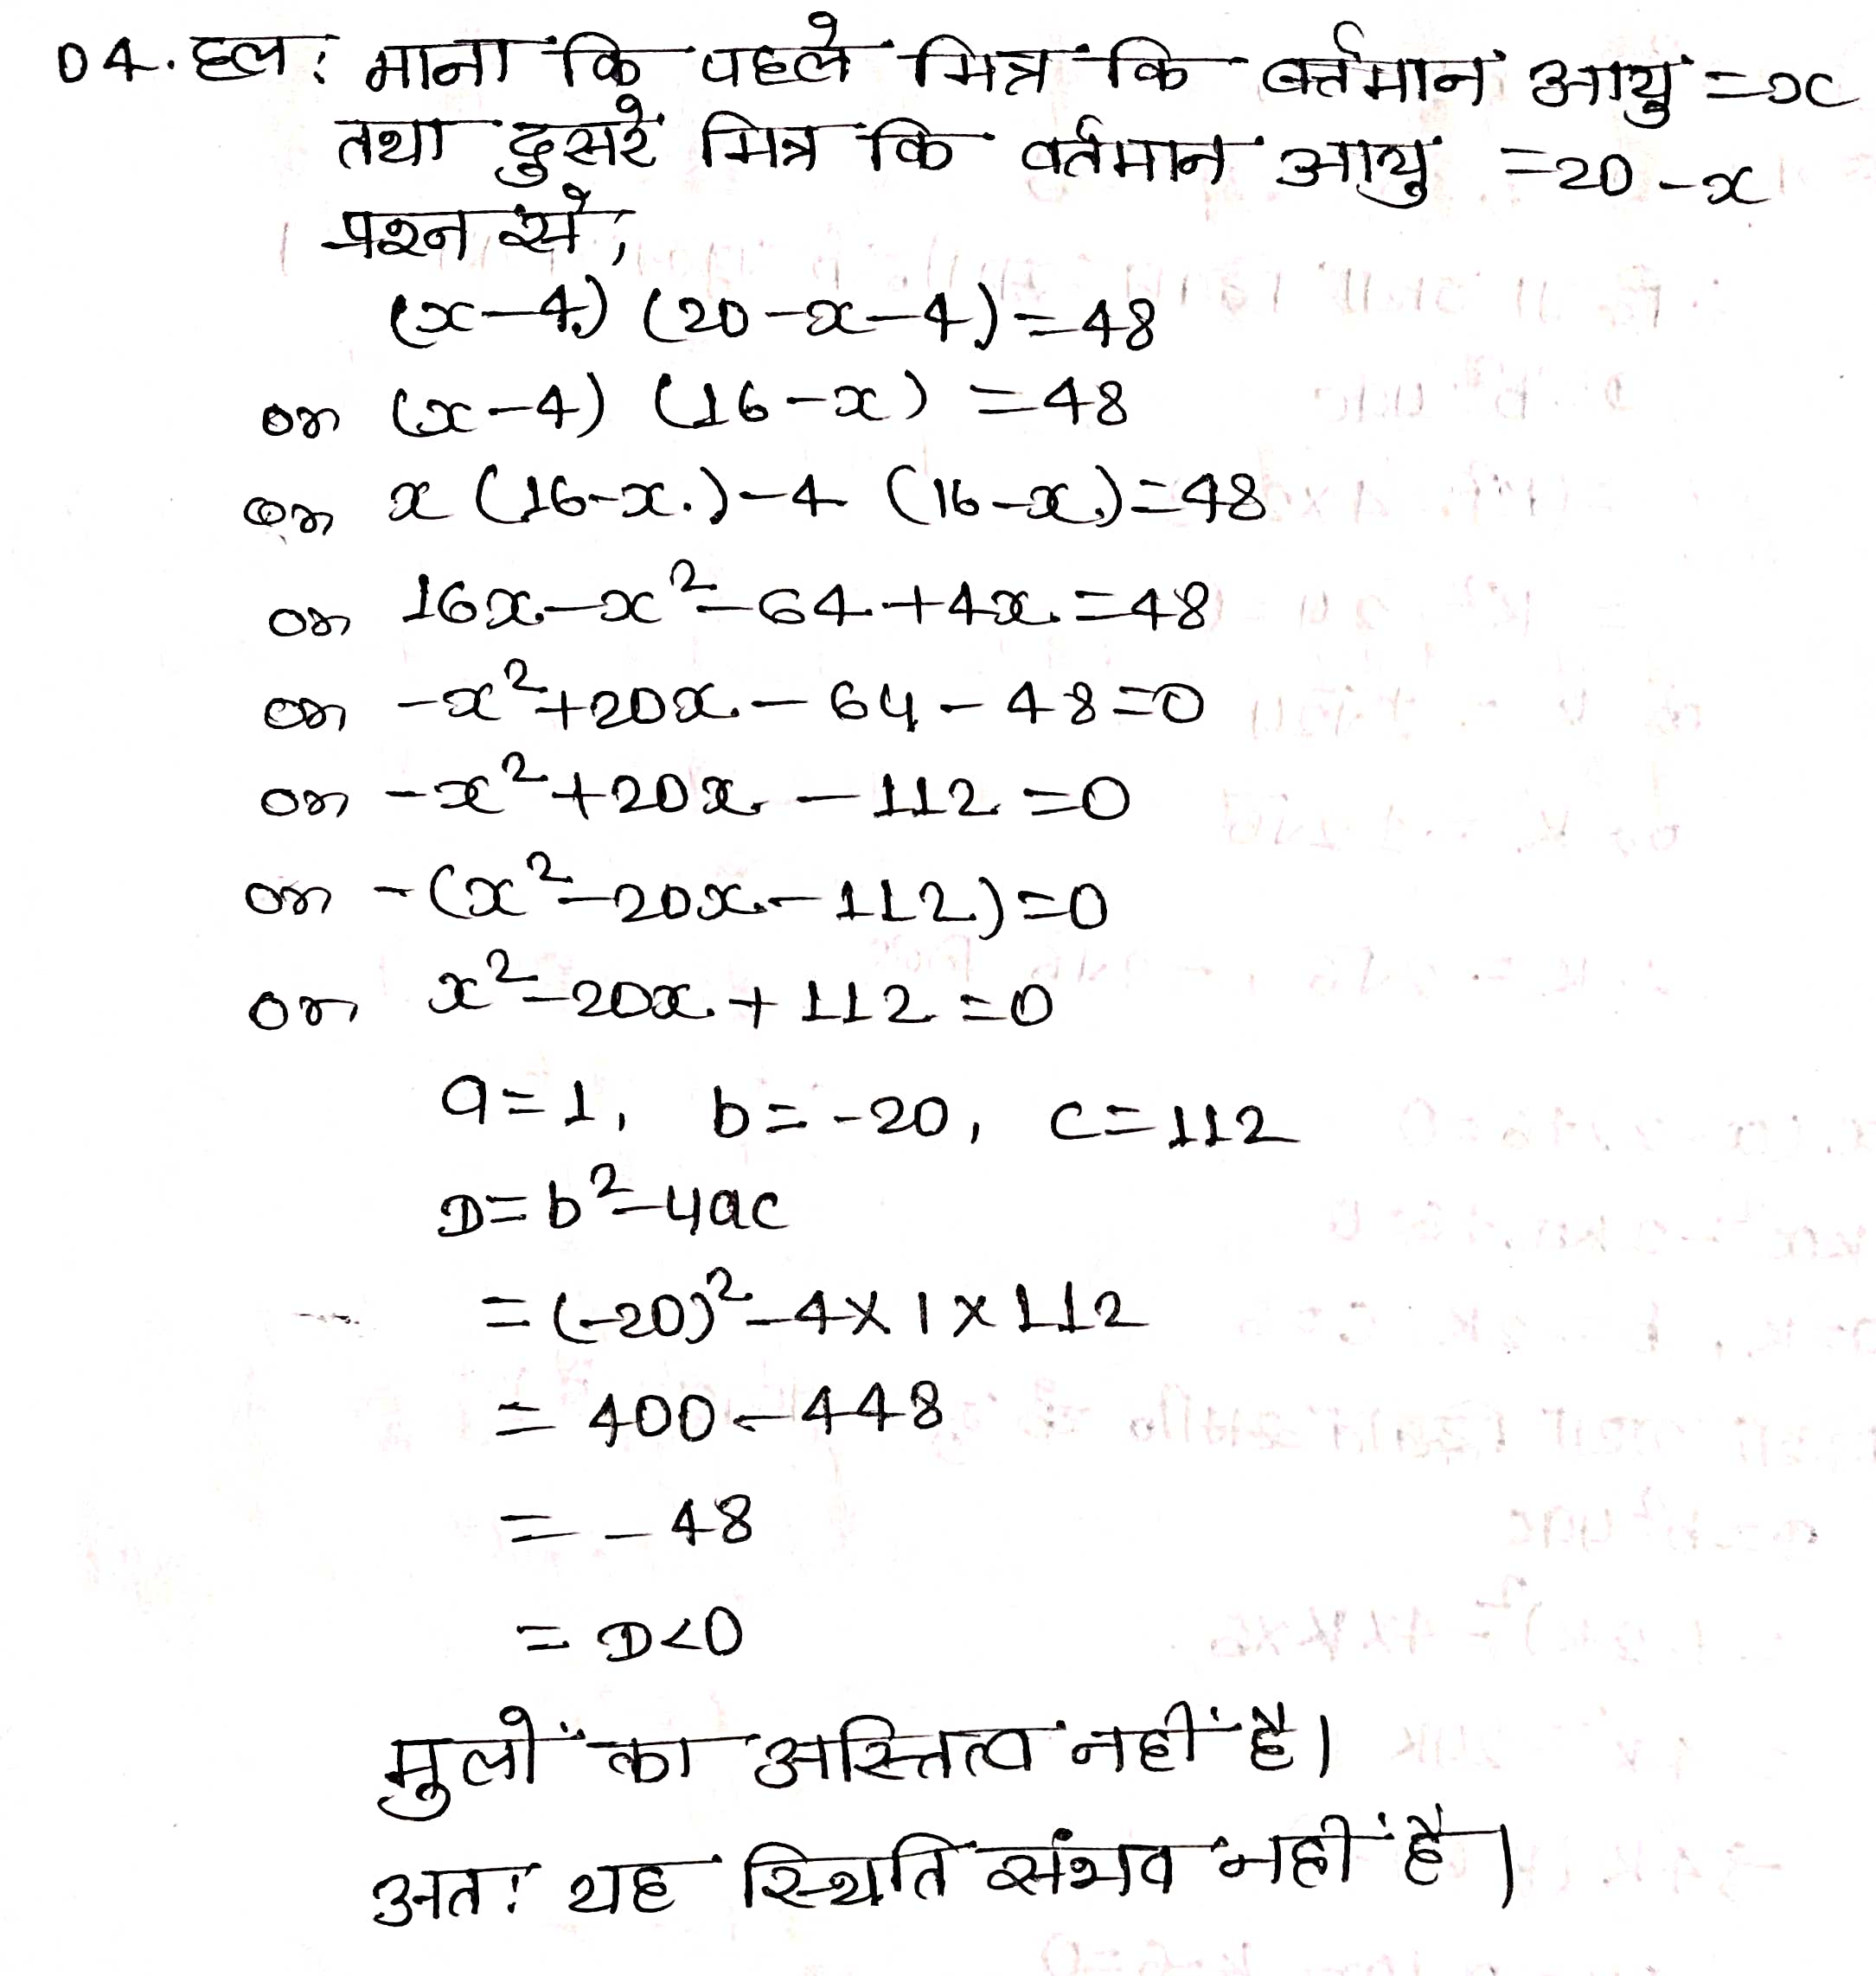 04. हल: माना कि पहले मित्र कि वर्तमान आयु = x
तथा दुसरे मित्र कि वर्तमान आयु = 20 - x
प्रश्न से,
(x-4) (20-x-4) = 48
or (x-4) (16-x) = 48
or x (16-x) - 4 (16-x) = 48
or 16x - x² - 64 + 4x = 48
or -x² + 20x - 64 - 48 = 0
or -x² + 20x - 112 = 0
or -(x² - 20x - 112) = 0
or x² - 20x + 112 = 0
a = 1, b = -20, c = 112
D = b² - 4ac
= (-20)² - 4 × 1 × 112
= 400 - 448
= - 48
= D < 0
मुलों का अस्तित्व नहीं है।
अत: यह स्थिति संभव नहीं है।